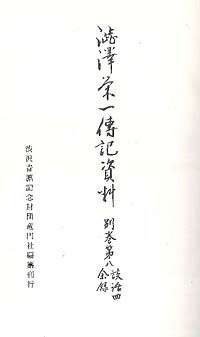 澁澤榮一傳記資料
別巻第八
談話四
余録
渋沢青淵記念財団竜門社編纂刊行